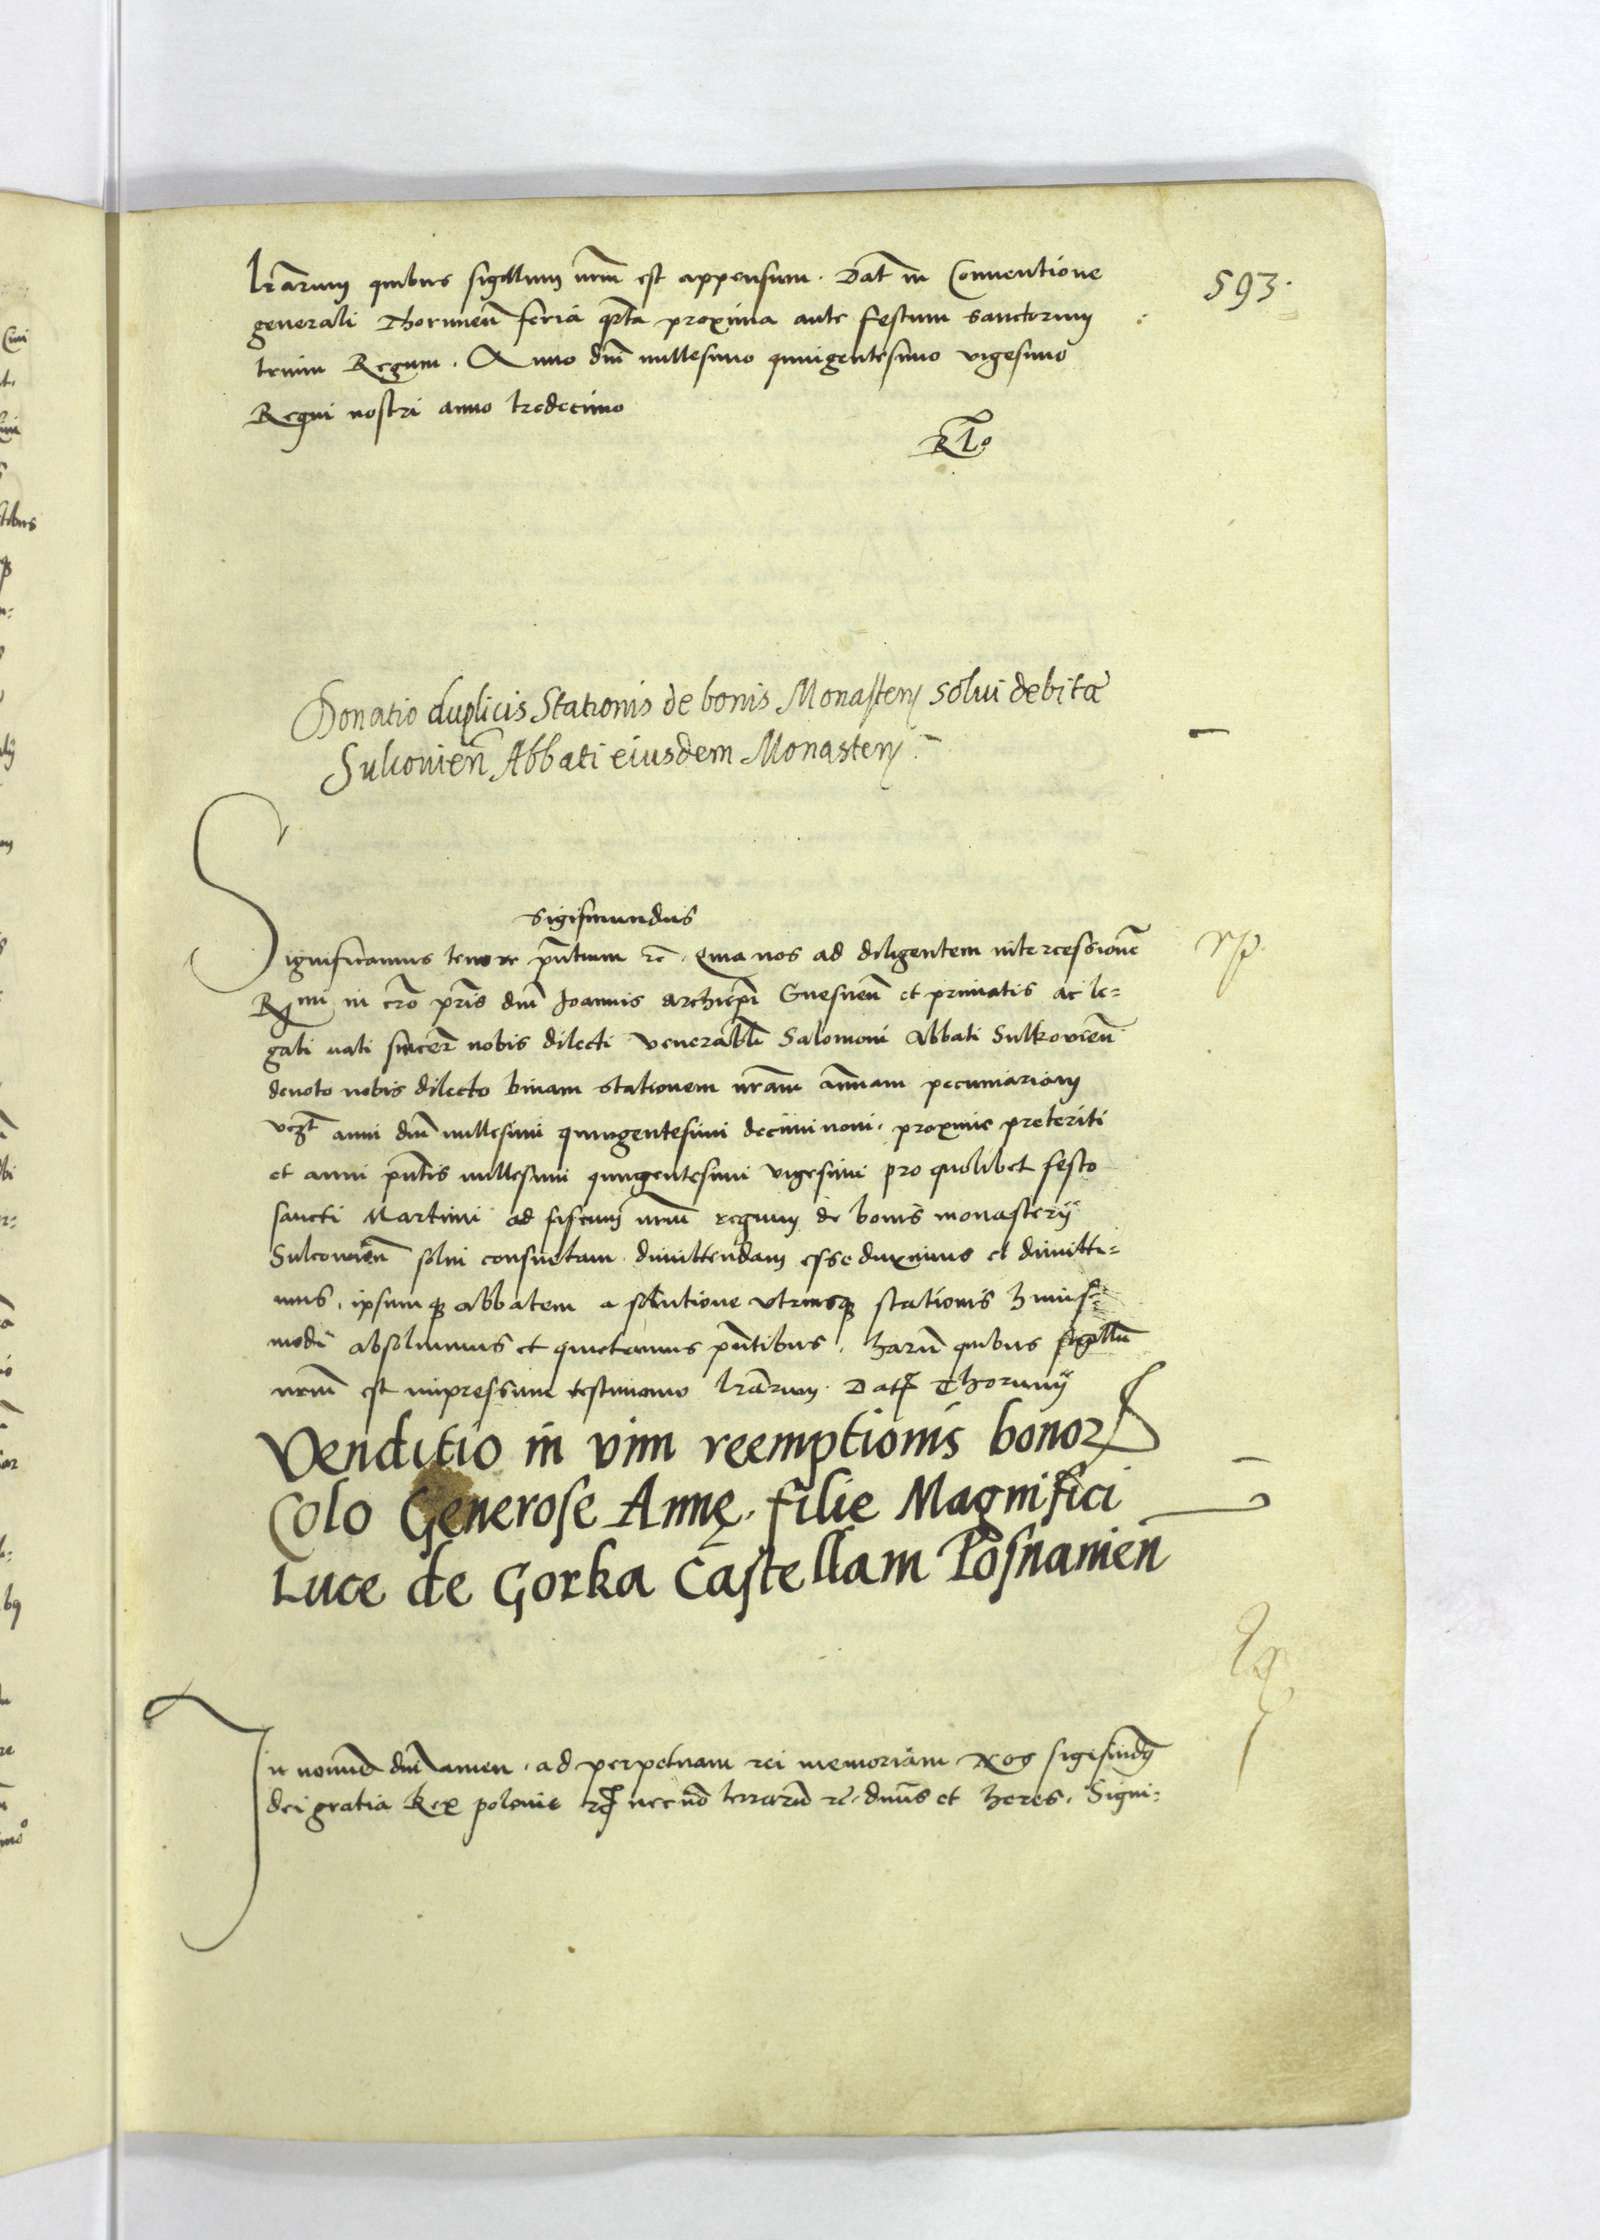 lrarum quibus sigillum nrm est appensum. Dat in Conventione
593.
generali Thorunen feria qrta proxima ante festum sanctorum
trium Regum. Anno dni millesimo quingentesimo vigesimo
Regni nostri anno tredecimo
Donatio duplicis Stationis de bonis Monasterij solui debitæ
Sulcouien Abbati eiusdem Monasterij
Sigismundus
Significamus tenore pntium rc. Quia nos ad diligentem intercessione
Rmi in cro pris dni Joannis archiepi Gnesnen et primatis ac le=
gati nati sincere nobis dilecti venerabili Salomoni Abbati Sulkovien
devoto nobis dilecto binam stationem nram annuam pecuniariam
vczt anni dni millesimi quingentesimi decimi noni. proxime preteriti
et anni pntis millesimi quingentesimi vigesimi pro quolibet festo
sancti Martini ad fiscum nrum regium de bonis monasterij
Sulcowien solui consuetam dimittendam esse duximus et dimitti=
mus, ipsumq abbatem a solutione vtriusq stationis huius=
modi absoluimus et quietamus pntibus. harum quibus sigillu
nrum est impressum testimonio lrarum. Dat Thorunij
Venditio in vim reemptionis bonor
Colo Generose Annę. filie Magnifici
Luce de Gorka Castellani Posnanien
In nomine dni amen. ad perpetuam rei memoriam Nos sigismdus
dei gratia Rex polonie rc necno terraru rc. dnus et heres. Signi=